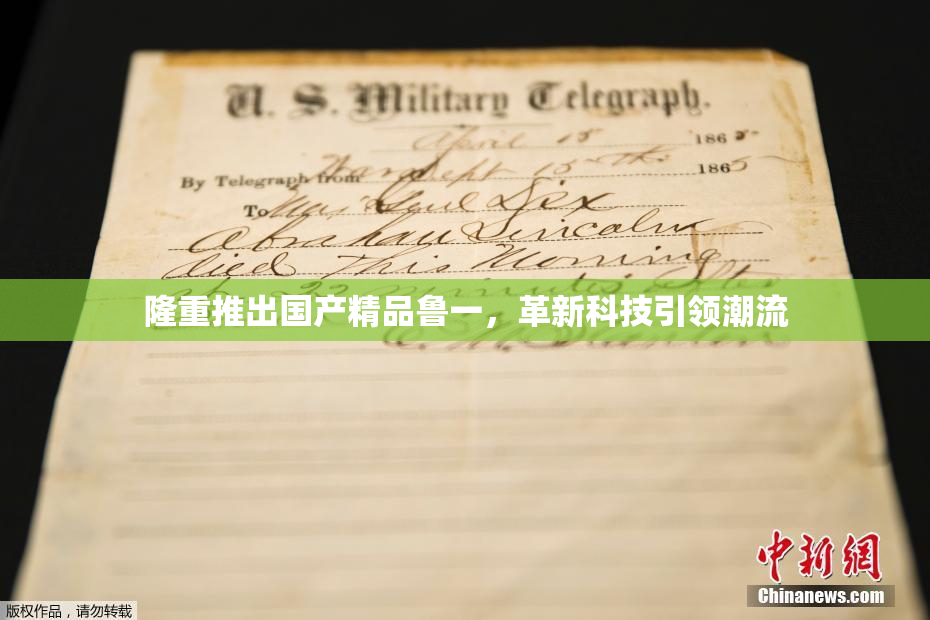 U. S. Military Telegraph.
April 15 1865.
By Telegraph from War Dept 15th 1865
To Maj Genl Dix
Abraham Lincoln
died This Morning
at 22 minutes after
隆重推出国产精品鲁一，革新科技引领潮流
E. M. Stanton
中新网
Chinanews.com
版权作品，请勿转载